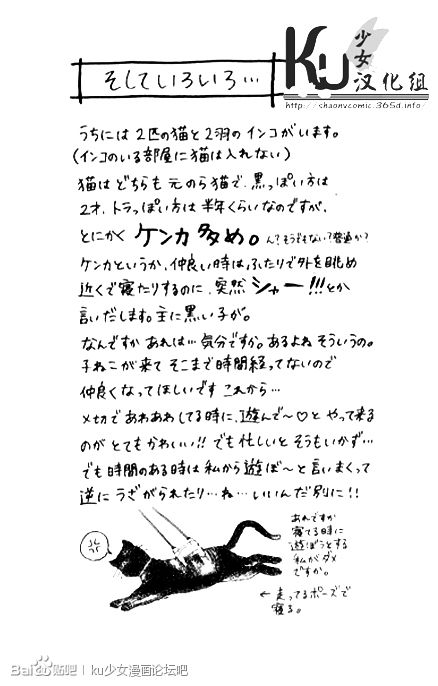 そしていろいろ…
Ku少女汉化组
http://shaonvcomic.365d.info/
うちには2匹の猫と2羽のインコがいます。
(インコのいる部屋に猫は入れない)
猫はどちらも元のら猫で、黒っぽい方は
2才、トラっぽい方は半年くらいなのですが、
とにかくケンカ多め。ん?そうでもない?普通か?
ケンカというか、仲良い時はふたりで外を眺め
近くで寝たりするのに、突然シャー!!!とか
言いだします。主に黒い子が。
なんですかあれは…気分ですか。あるよねそういうの。
子ねこが来てそこまで時間経ってないので
仲良くなってほしいですこれから…
〆切であわあわしてる時に、遊んで〜♡とやって来る
のがとてもかわいい!!でも忙しいとそうもいかず…
でも時間のある時は私から遊ぼ〜と言いまくって
逆にうざがられたり…ね…いいんだ別に!!
あれですか
寝てる時に
遊ぼうとする
私がダメ
ですか。
←走ってるポーズで
寝る。
Bai du 贴吧 | ku少女漫画论坛吧